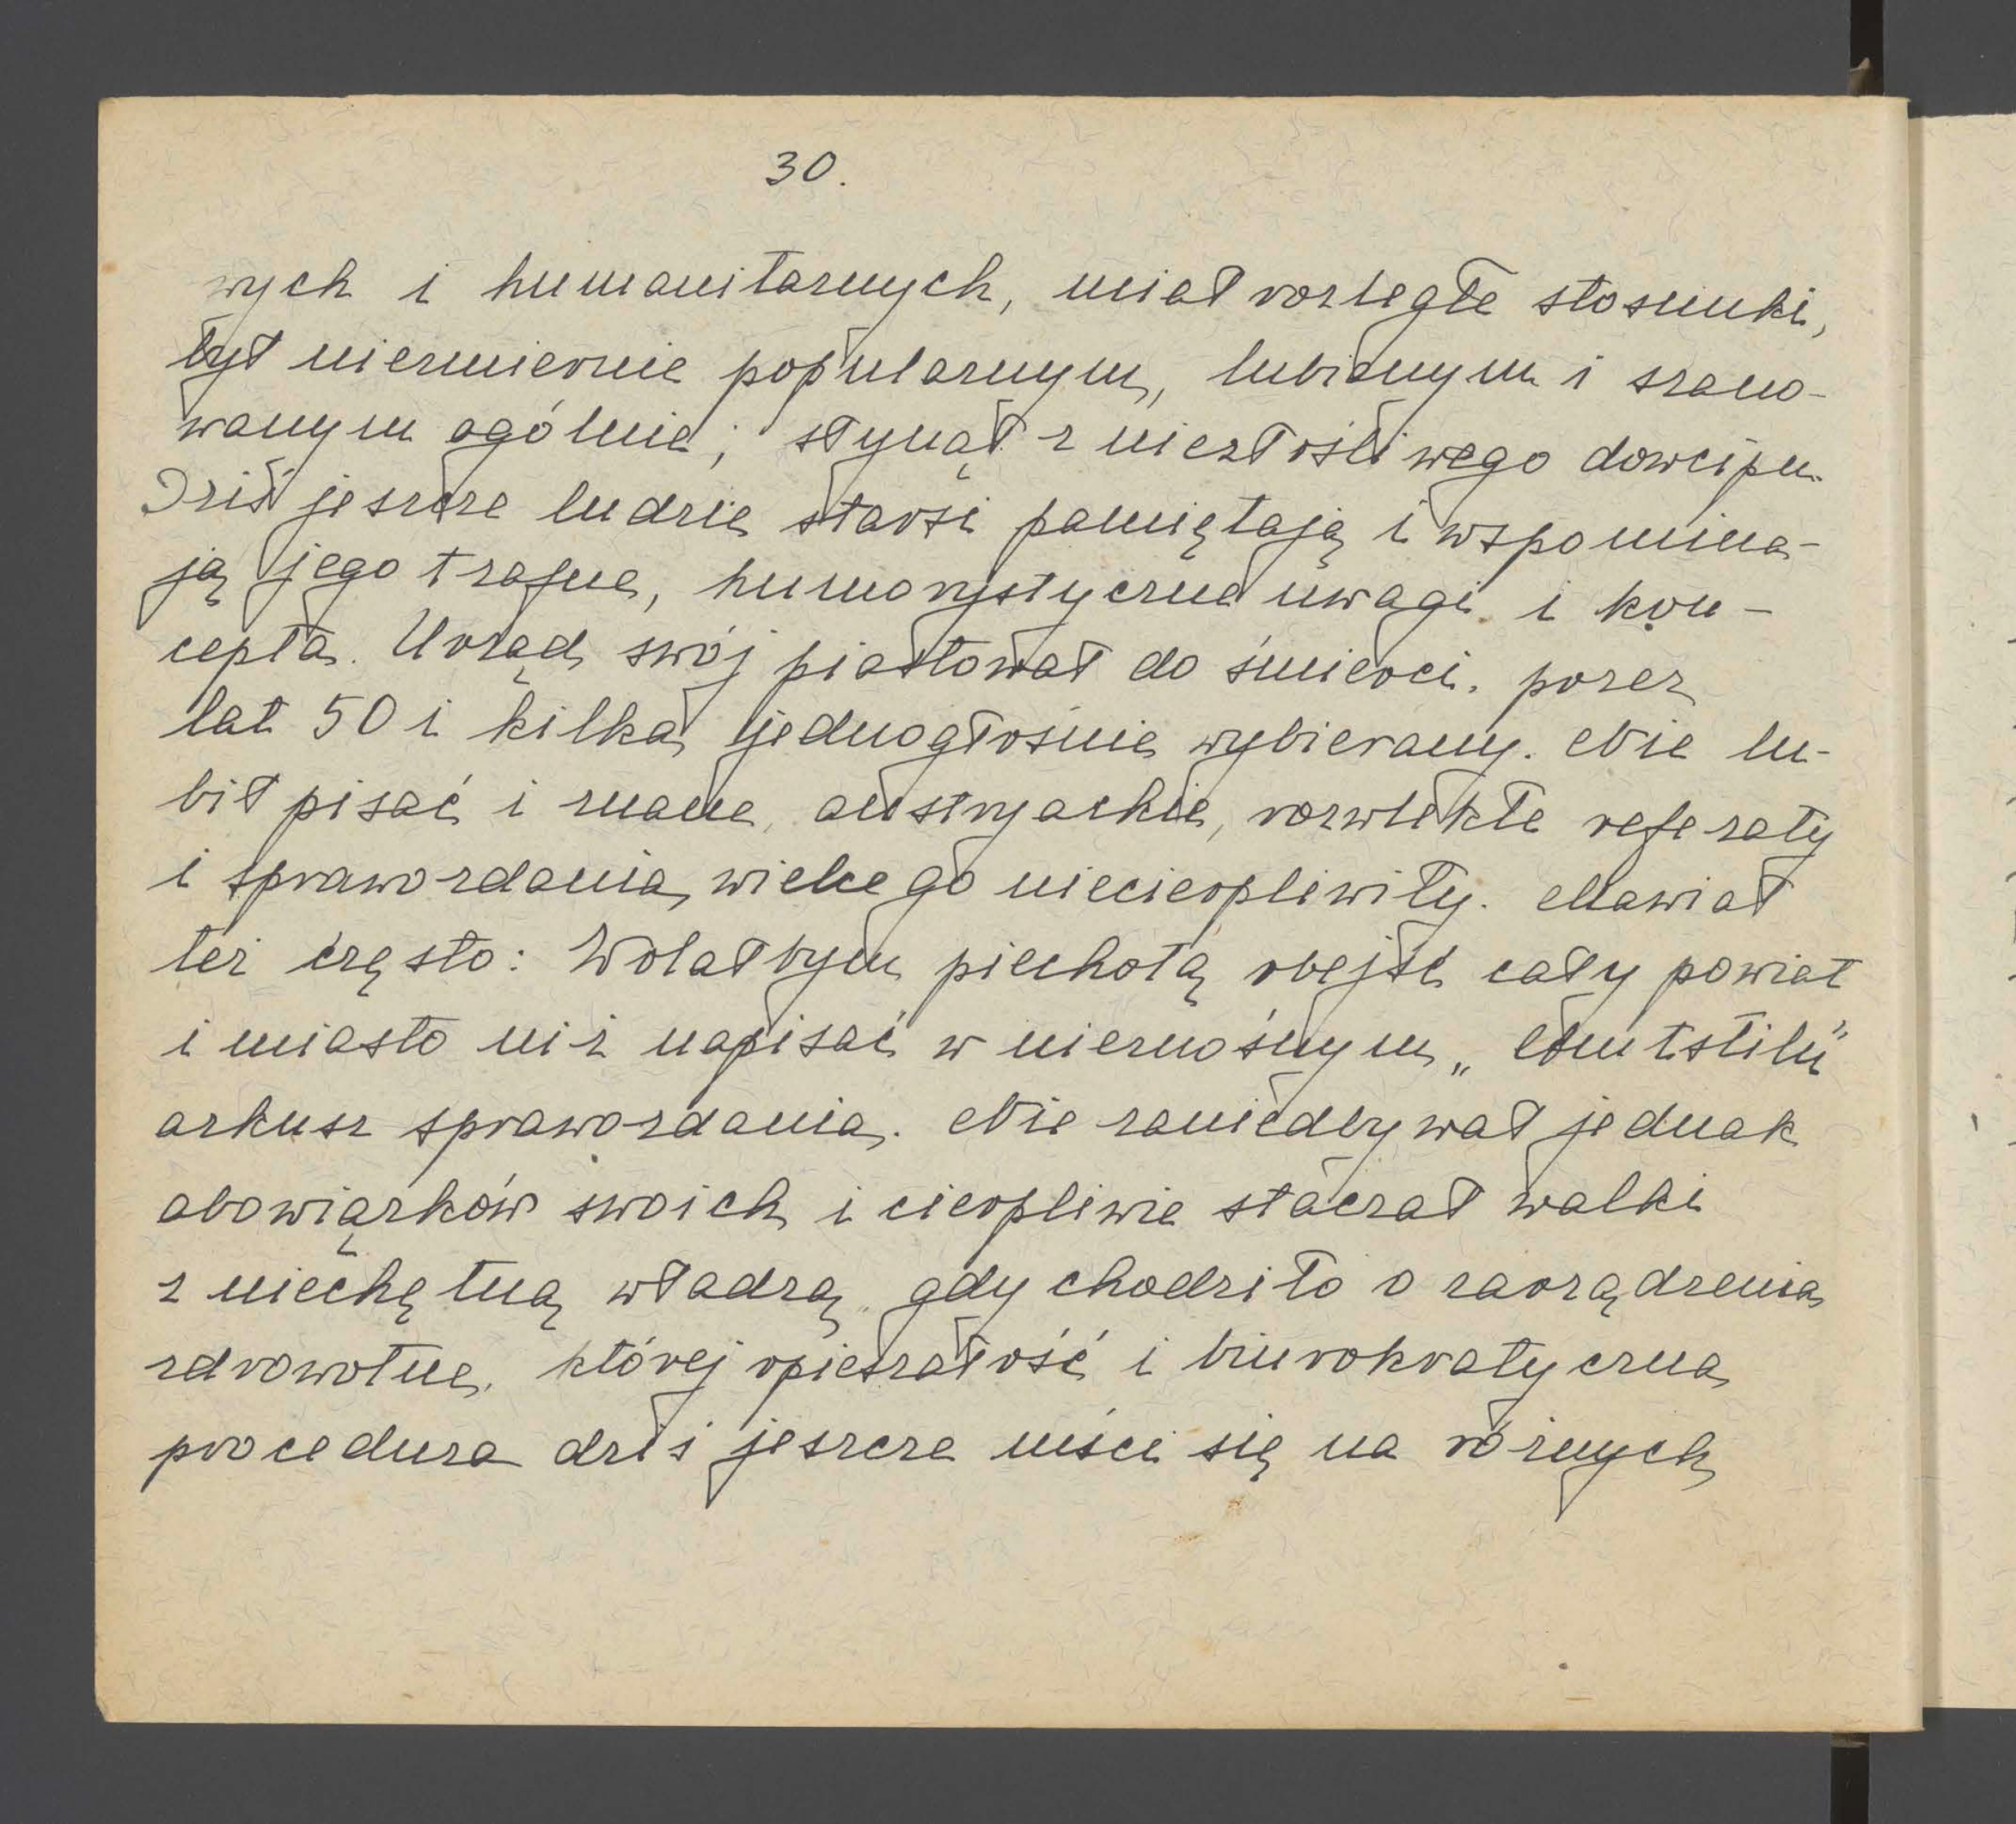 30.
wych i humanitarnych, miał rozległe stosunki,
był niezmiernie popularnym, lubianym i szano-
wanym ogólnie; słynął z niezłośliwego dowcipu.
Dziś jeszcze ludzie starsi pamiętają i wspomina-
ją jego trafne, humorystyczne uwagi i kon-
cepta. Urząd swój piastował do śmierci, przez
lat 50 i kilka jednogłośnie wybierany. Nie lu-
bił pisać i znane, austryackie, rozwlekłe referaty
i sprawozdania, wielce go niecierpliwiły. Mawiał
też często: Wolałbym piechotą obejść cały powiat
i miasto niż napisać w nieznośnym „Amtstilu"
arkusz sprawozdania. Nie zaniedbywał jednak
obowiązków swoich i cierpliwie staczał walki
z niechętną władzą, gdy chodziło o zarządzenia
zdrowotne, której opieszałość i biurokratyczna
procedura dziś jeszcze mści się na różnych